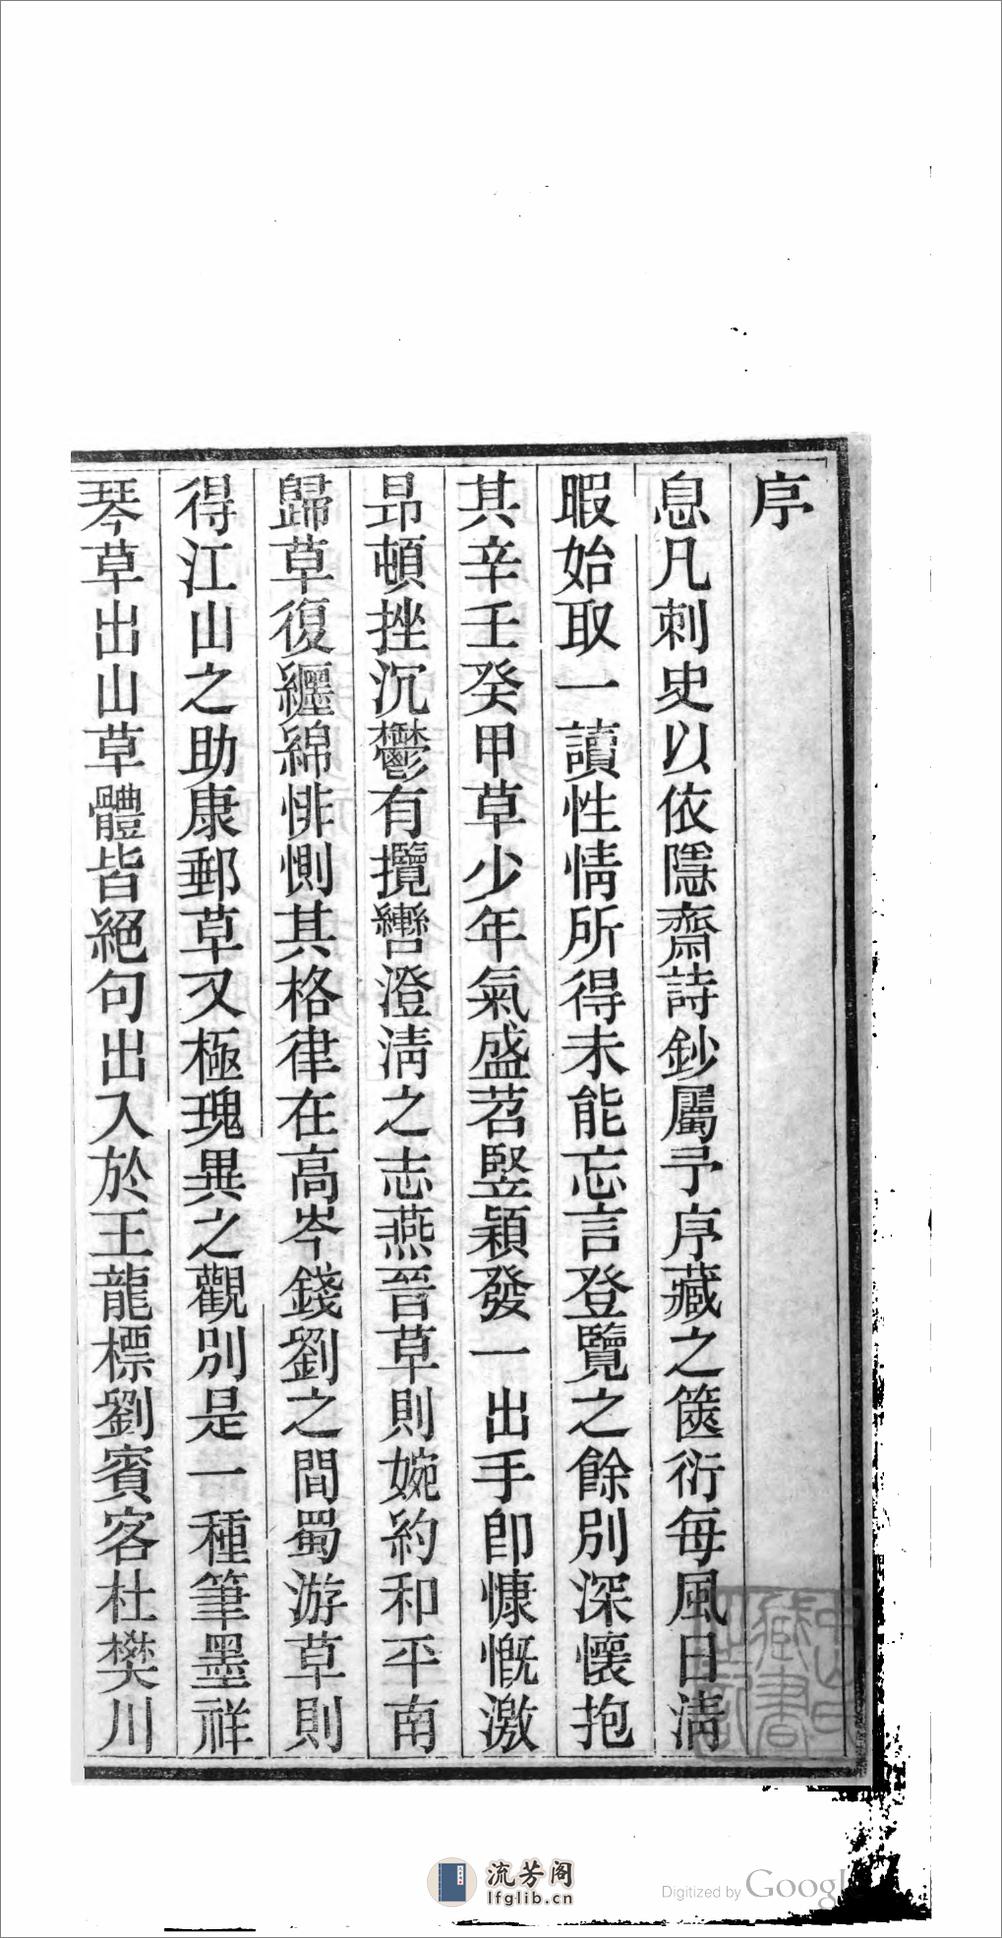 序
息凡刺史以依隱齋詩鈔屬予序藏之篋衍每風日淸
暇始取一讀性情所得未能忘言登覽之餘別深懷抱
其辛壬癸甲草少年氣盛苕豎穎發一出手卽慷慨激
昻頓挫沉鬱有攬轡澄淸之志燕晉草則婉約和平南
歸草復纏綿悱惻其格律在高岑錢劉之間蜀游草則
得江山之助康郵草又極瑰異之觀別是一種筆墨祥
琴草出山草體皆絕句出入於王龍標劉賓客杜樊川
流芳阁
lfglib.cn
Digitized by Google